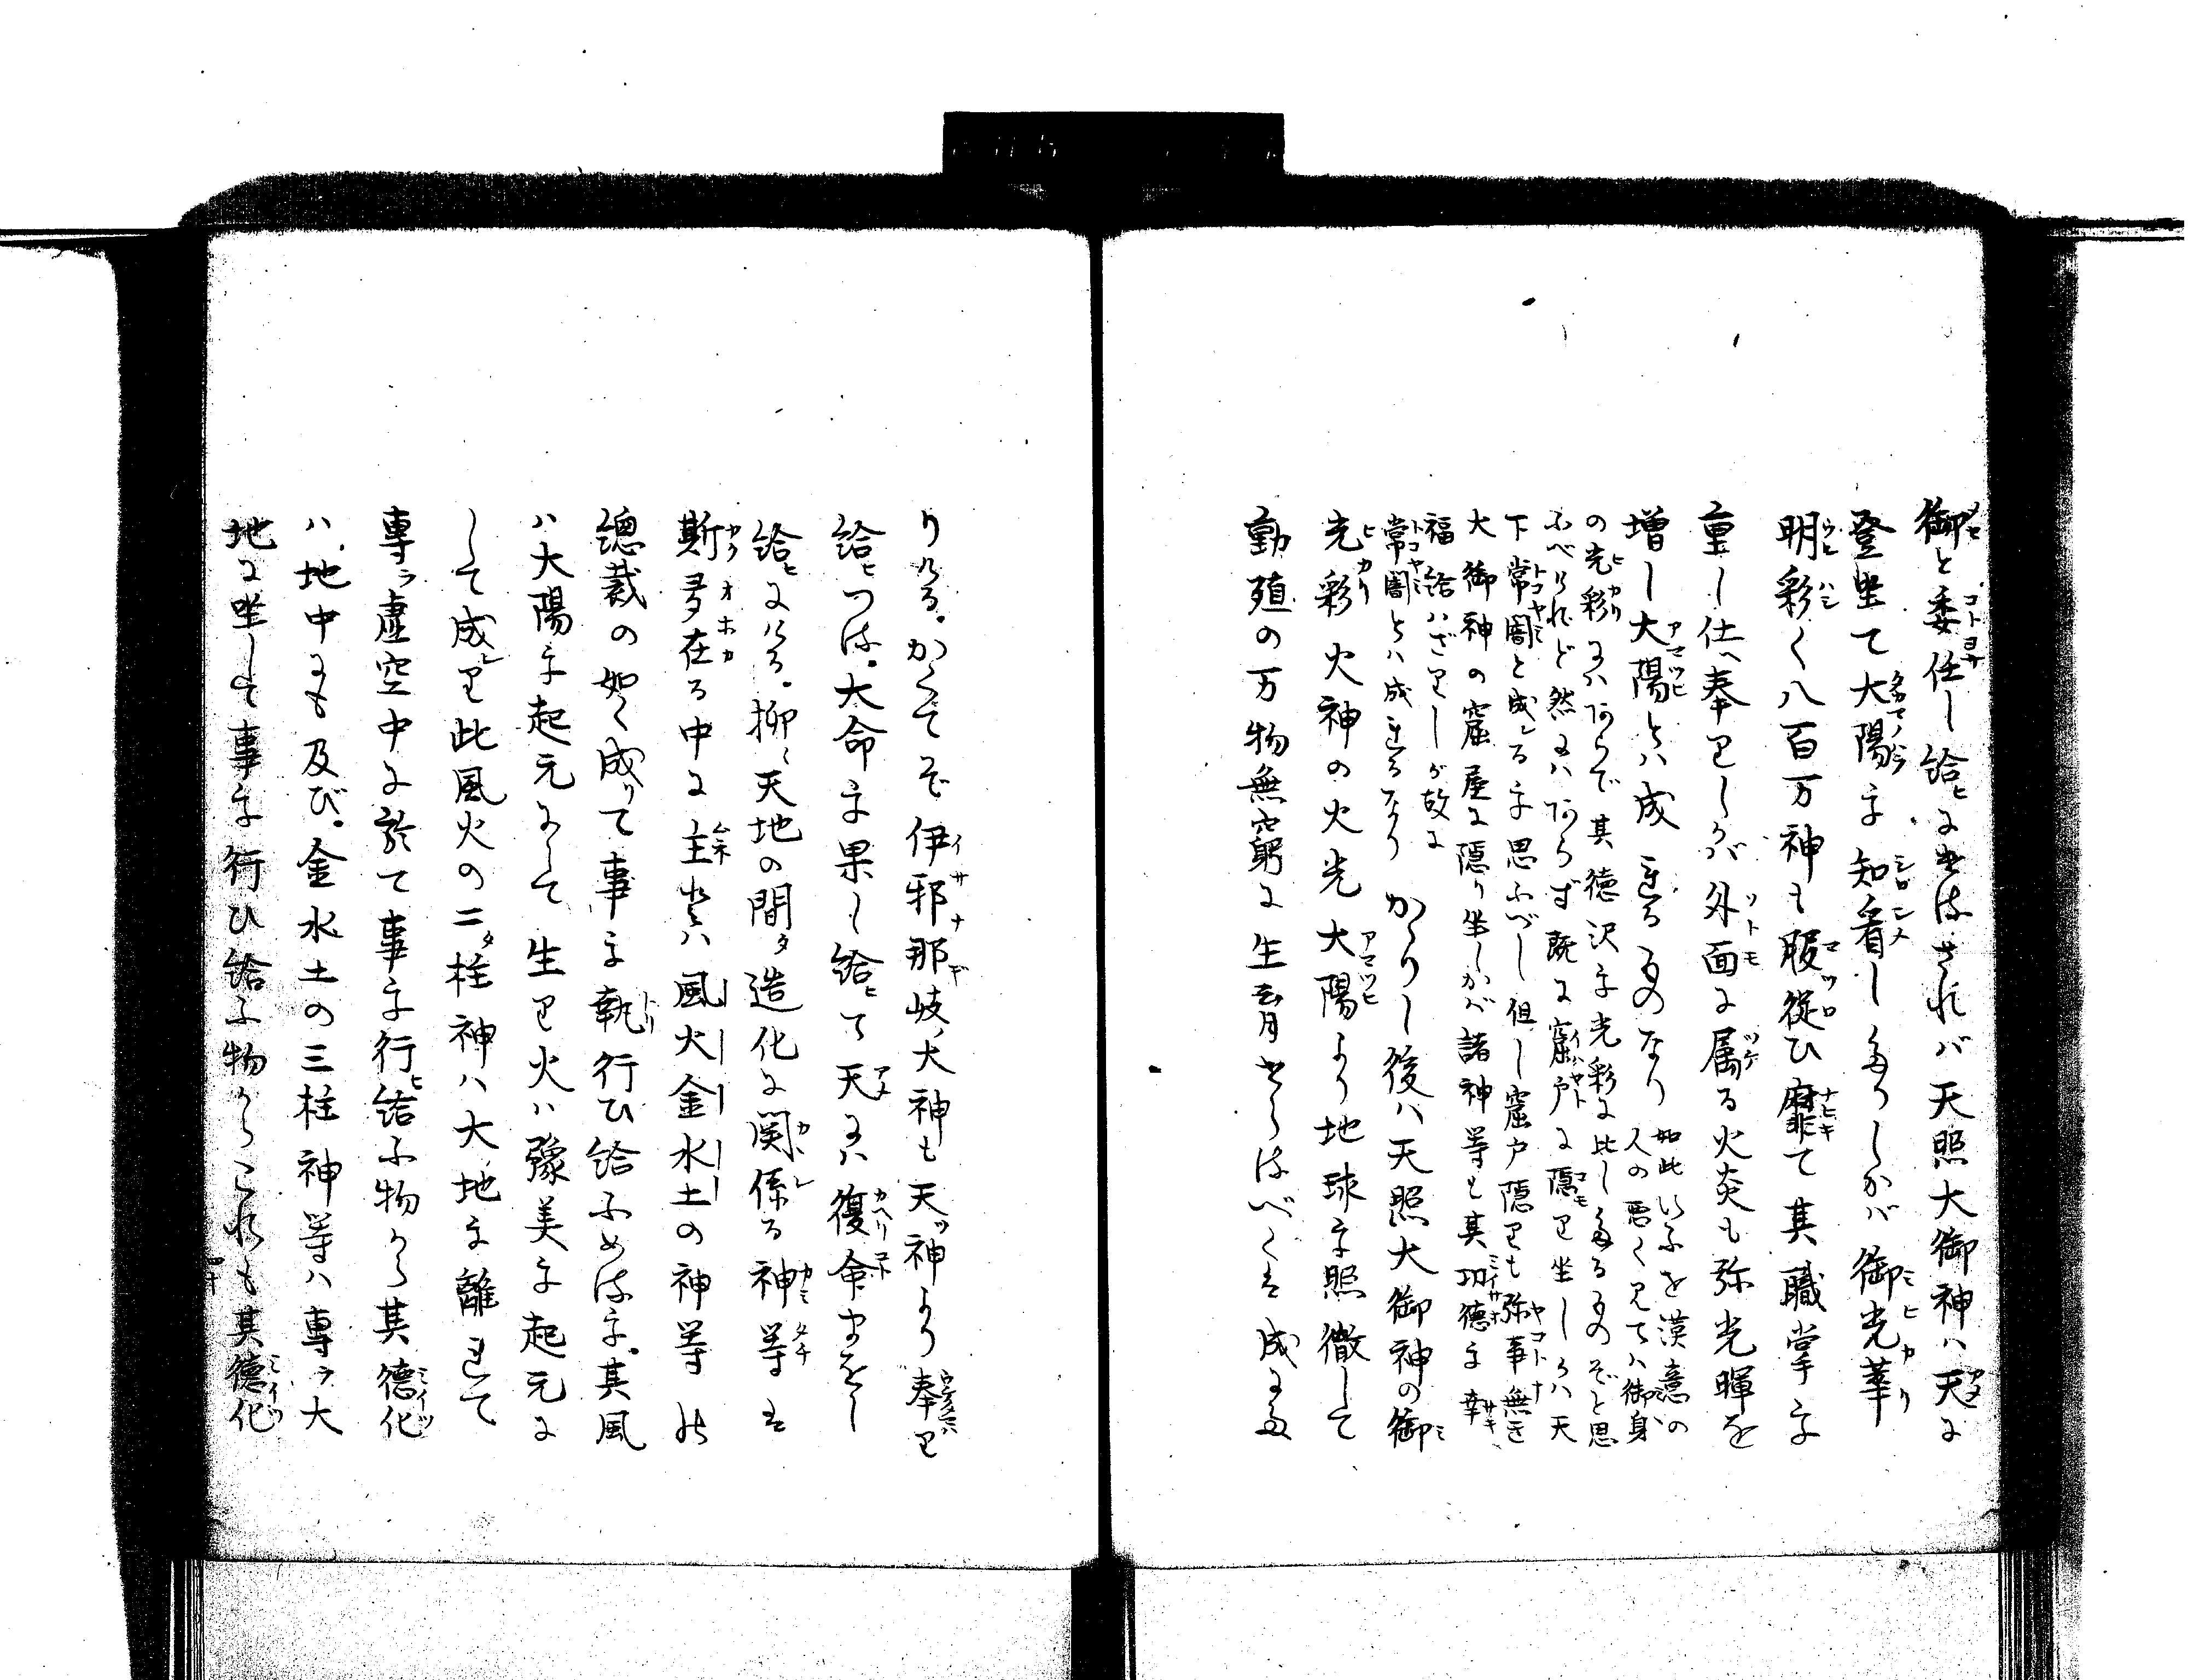 御と委任し給ひにき。されバ天照大御神ハ天に
登坐て大陽を知看しゝかバ御光華
明彩く八百万神も服従ひ靡て其職掌を
重し仕へ奉りしかバ外面に属る火炎も弥光暉を
増し大陽とハ成れるものなり如此いふを漢意の
人の悪く見てハ御身
の光彩にハあらで其徳沢を光彩に比したるものぞと思
ふべけれど然にハあらず既に窟戸に隠り坐しゝハ天
下常闇と成れるを思ふべし但し窟戸隠りも弥事無き
大御神の窟屋に隠り坐しかバ諸神等も其功徳を幸
福給ハざりしが故に
常闇とハ成れるなりかゝりし後ハ天照大御神の御
光彩火神の火光大陽より地球を照徹して
動殖の万物無窮に生育せらはべくは成にた
りける。かくてぞ伊邪那岐ノ大神も天ッ神より奉り
給ひつる。大命を果し給ひて天にハ復命まをし
給ひにける。抑々天地の間タ造化に関係る神等は
斯多在る中に主楚ハ風火金水土の神等
総裁の如く成りて事を執行ひ給ふめるを。其風
ハ大陽を起元にして生り火ハ豫美を起元に
して成れり此風火の二タ柱神ハ大地を離れて
専ラ虚空中に於て事を行ひ給ふ物から其徳化
ハ地中にも及び。金水土の三柱神等ハ専ラ大
地に坐して事を行ひ給ふ物からこれも其徳化